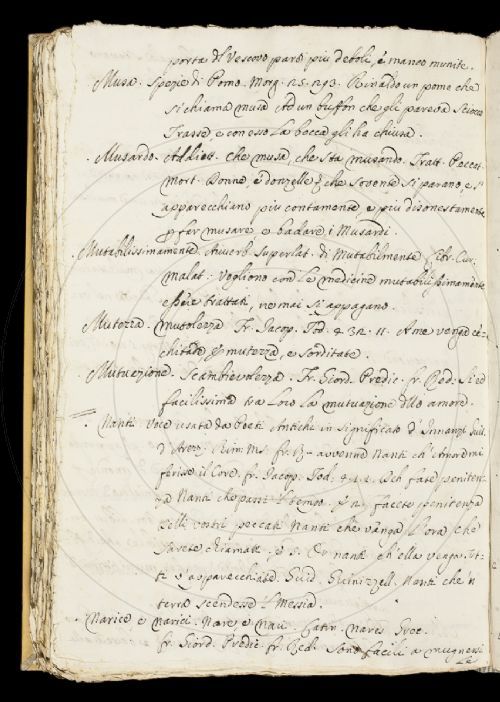 porta del Vescovo parti più deboli, e manco munite.
Musa. Spezie di Pomo. Morg. 25. 293. Rinaldo un pome che
si chiama musa Ad un buffon che gli pareva sciocco
Trasse e con esso La bocca gli ha chiusa.
Musardo. Addiett. Che musa, che sta musando. Tratt. Peccat.
mort. Donne, e donzelle che sovente si parano, e s'
apparecchiano più contamente, e più disonestamente
per fer musare, e badare i Musardi.
Mutabilissimamente. Avverb. Superlat. di Mutabilmente. Libr. Cur.
malat. Vogliono con Le medicine mutabilissimamente
essere trattati, ne mai si appagano.
Mutezza. Mutolezza. Fr. Jacop. Tod. 4. 32. 11. A me venga ce-
chitade e mutezza, e sorditate.
Mutuazione. Scambievolezza. Fr. Giord. Predic. fr. Red. Si ed
facilissima tra Loro La mutuazione dello amore.
Nanti. Voce usata da Poeti Antichi in significato d'Innanzi. Guitt.
d'Arezz. Rim. ms. fr. 13. avvenne Nanti ch' Amor mi
ferisse il Core. fr. Jacop. Tod. fate peniten-
za Nanti che passi 'l tempo. facete penitenza
Delli vostri peccati Nanti che venga l'ora Che
sarete chiamati. nanti ch' ella venga Tut-
ti v'apparecchiate. Guid. Guinizzell. Nanti che 'n
terra scendesse 'l Messia.
Narice, e Narici. Nare, e Nari. Latin. Nares. Grec.
fr. Giord. Predic. fr. Red. Sono facili a mugnersi
le